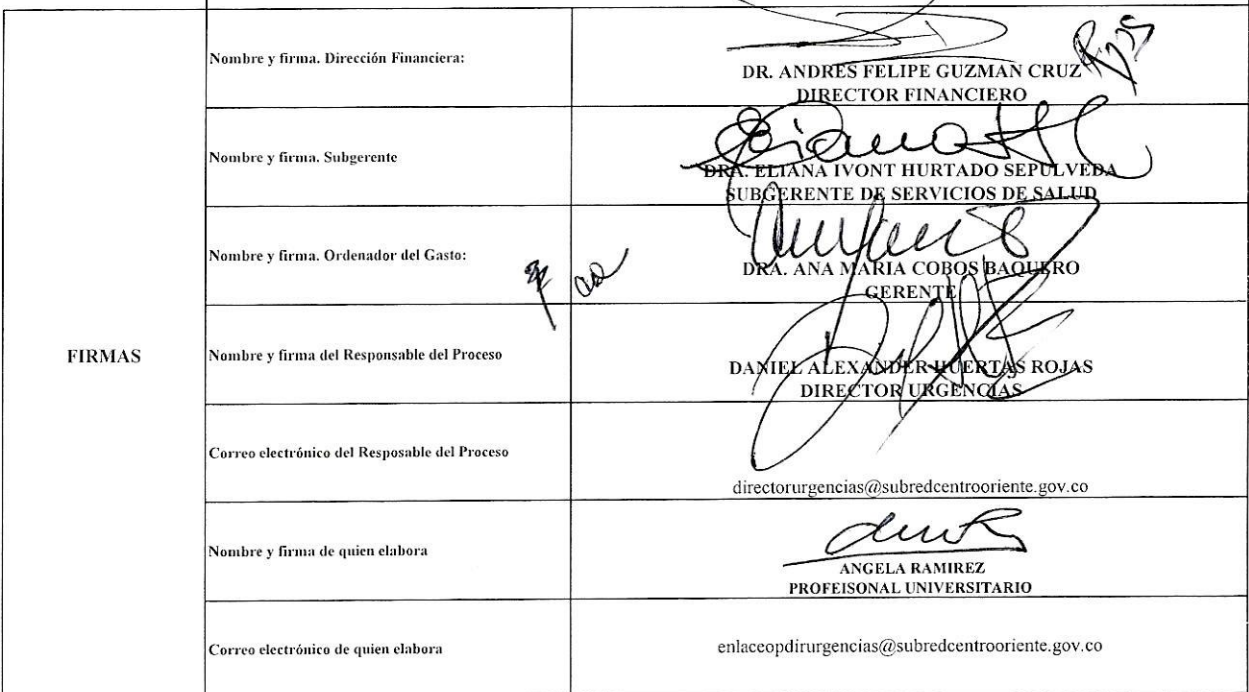 Nombre y firma. Dirección Financiera:
DR. ANDRES FELIPE GUZMAN CRUZ
DIRECTOR FINANCIERO
Nombre y firma. Subgerente
DRA. ELIANA IVONT HURTADO SEPULVEDA
SUBGERENTE DE SERVICIOS DE SALUD
Nombre y firma. Ordenador del Gasto:
DRA. ANA MARIA COBOS BAQUERO
GERENTE
FIRMAS
Nombre y firma del Responsable del Proceso
DANIEL ALEXANDER HUERTAS ROJAS
DIRECTOR URGENCIAS
Correo electrónico del Resposable del Proceso
directorurgencias@subredcentrooriente.gov.co
Nombre y firma de quien elabora
ANGELA RAMIREZ
PROFEISONAL UNIVERSITARIO
Correo electrónico de quien elabora
enlaceopdirurgencias@subredcentrooriente.gov.co